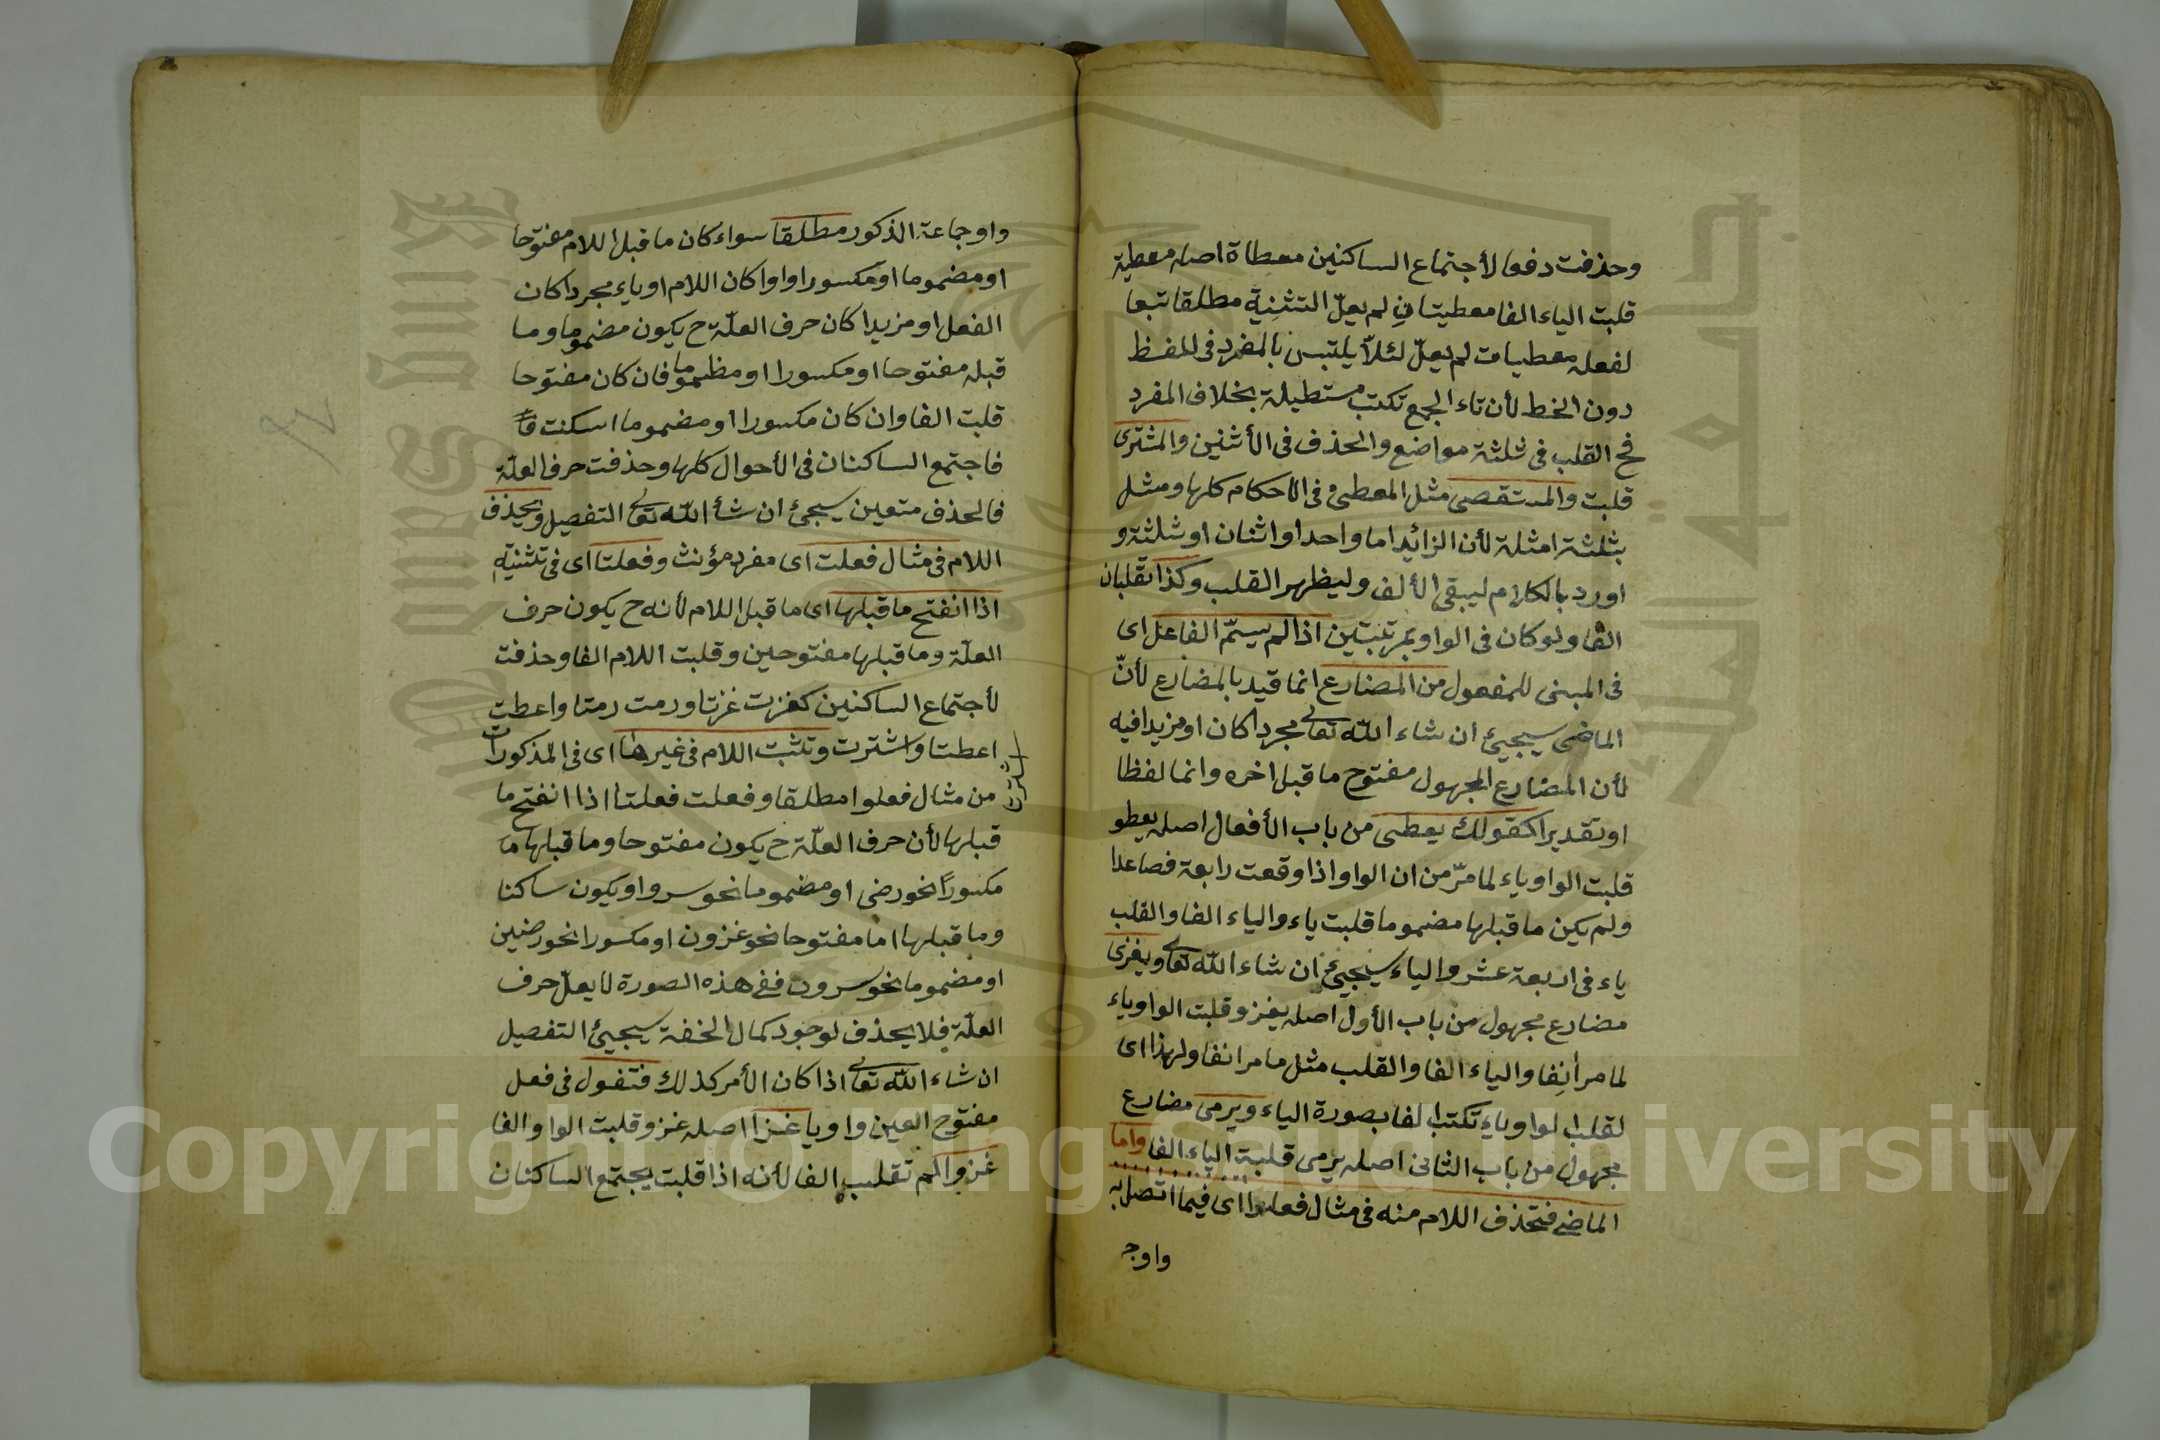 وحذفت دفعا لأجتماع الساكنين معطاة اصله معطية
قلبت الياء الفا معطيتان لم يعلّ التثنية مطلقا تبعا
لفعله معطيات لم يعلّ لئلاّ يلتبس بالمفرد فى اللفظ
دون الخط لأن تاء الجمع تكتب مستطيلة بخلاف المفرد
فح القلب فى ثلثة مواضع والحذف فى الأثنين والمشترى
قلبت والمستقصى مثل المعطى فى الأحكام كلها ومثل
بثلثة امثلة لأن الزائد اما واحد او اثنان او ثلثة و
اورد بالكلام ليبقى الألف وليظهر القلب وكذا تقلبان
الفا ولو كان فى الواو بمرتبتين اذا لم يسمّ الفاعل اى
فى المبنى للمفعول من المضارع انما قيد بالمضارع لأنّ
الماضى سيجيئ ان شاء الله تعالى مجردا كان او مزيدا فيه
لأن المضارع المجهول مفتوح ما قبل اخره وانما لفظا
او تقديرا كقولك يعطى من باب الأفعال اصله يعطو
قلبت الواو ياء لما مرّ من ان الواو اذا وقعت رابعة فصاعدا
ولم يكن ما قبلها مضموما قلبت ياء والياء الفا والقلب
ياء فى اربعة عشر والياء سيجيئ ان شاء الله تعالى ويغزى
مضارع مجهول من باب الأول اصله يغزو قلبت الواو ياء
لما مر أنفا والياء الفا والقلب مثل ما مر انفا ولهذا اى
لقلب الواو ياء تكتب الفا بصورة الياء ويرمى مضارع
مجهول من باب الثانى اصله يرمى قلبت الياء الفا واما
الماضى فتحذف اللام منه فى مثال فعلوا اى فيما اتصل به
واوج
واو جماعة الذكور مطلقا سواء كان ما قبل اللام مفتوحا
او مضموما او مكسورا واوا كان اللام او ياء مجردا كان
الفعل او مزيدا كان حرف العلّة ح يكون مضموما وما
قبله مفتوحا او مكسورا او مظموما فان كان مفتوحا
قلبت الفا وان كان مكسورا او مضموما اسكنت
فاجتمع الساكنان فى الأحوال كلها وحذفت حرف العلّة
فالحذف متعين سيجئ ان شأ الله تعالى التفصيل ويحذف
اللام فى مثال فعلت اى مفرد مؤنث وفعلتا اى فى تثنيته
اذا انفتح ما قبلها اى ما قبل اللام لأنه ح يكون حرف
العلّة وما قبلها مفتوحين وقلبت اللام الفا وحذفت
لأجتماع الساكنين كغزت غزتا ورمت رمتا واعطت
اعطتا واشترت وتثبت اللام فى غيرها اى فى المذكورات
من مثال فعلوا مطلقا وفعلت فعلتا اذا انفتح ما
قبلها لأن حرف العلّة ح يكون مفتوحا وما قبلها
مكسورًا نحو رضى او مضموما نحو سرو او يكون ساكنا
وما قبلها اما مفتوحا نحو غزون او مكسورا نحو رضين
او مضموما نحو سرون ففى هذه الصورة لا يعلّ حرف
العلّة فلا يحذف لوجود كمال الخفة سيجيئ التفصيل
ان شاء الله تعالى اذا كان الأمر كذلك فتقول فى فعل
مفتوح العين واويا غزا اصله غزو قلبت الواو الفا
غزوا لم تقلب الفا لأنه اذا قلبت يجتمع الساكنان